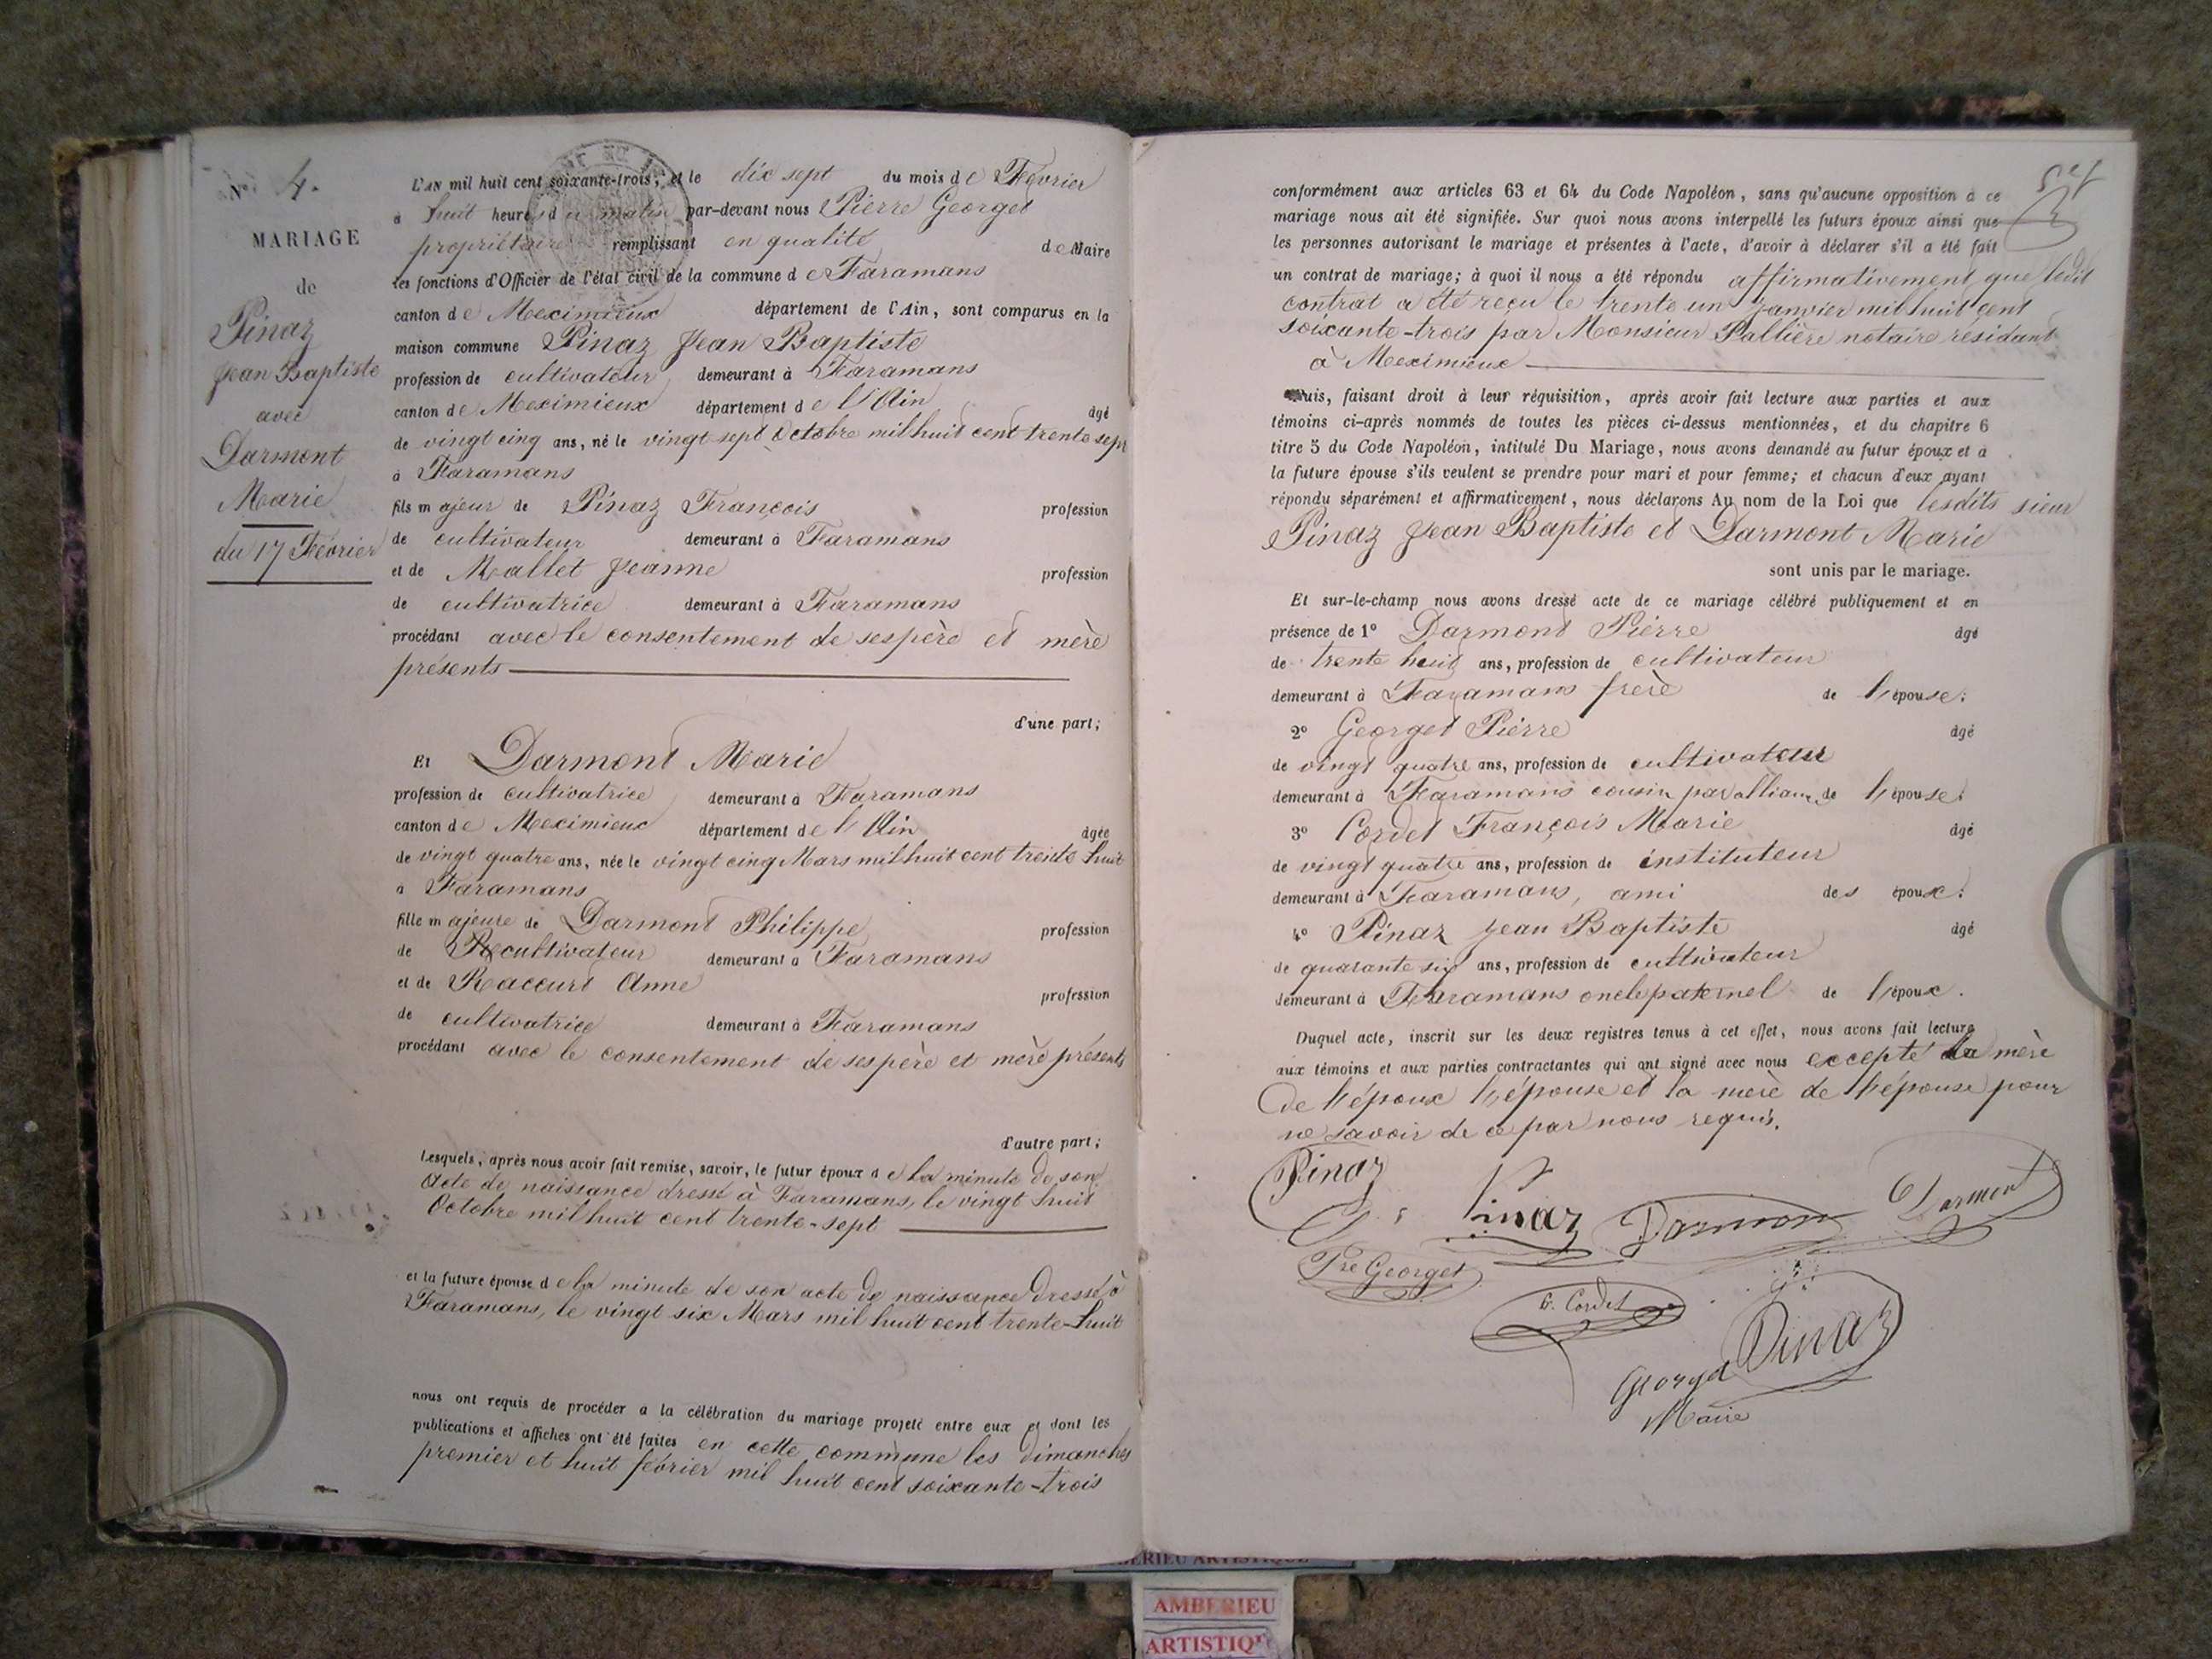 N° 4.
MARIAGE
de
Pinaz
Jean Baptiste
avec
Darmont
Marie
du 17 Février
L'AN mil huit cent soixante-trois, et le dix sept du mois de Février
à huit heures du matin par-devant nous Pierre Georget
propriétaire remplissant en qualité de Maire
les fonctions d'Officier de l'état civil de la commune de Faramans
canton de Meximieux département de l'Ain, sont comparus en la
maison commune Pinaz Jean Baptiste
profession de cultivateur demeurant à Faramans
canton de Meximieux département de l'Ain âgé
de vingt cinq ans, né le vingt sept Octobre mil huit cent trente sept
à Faramans
fils majeur de Pinaz François profession
de cultivateur demeurant à Faramans
et de Mallet Jeanne profession
de cultivatrice demeurant à Faramans
procédant avec le consentement de ses père et mère
présents
d'une part;
Et Darmont Marie
profession de cultivatrice demeurant à Faramans
canton de Meximieux département de l'Ain âgée
de vingt quatre ans, née le vingt cinq Mars mil huit cent trente huit
à Faramans
fille majeure de Darmont Philippe profession
de cultivateur demeurant à Faramans
et de Raccurt Anne profession
de cultivatrice demeurant à Faramans
procédant avec le consentement de ses père et mère présents
d'autre part;
Lesquels, après nous avoir fait remise, savoir, le futur époux de la minute de son
acte de naissance dressé à Faramans, le vingt huit
Octobre mil huit cent trente-sept
et la future épouse de la minute de son acte de naissance dressé à
Faramans, le vingt six Mars mil huit cent trente-huit
nous ont requis de procéder à la célébration du mariage projeté entre eux et dont les
publications et affiches ont été faites en cette commune les dimanches
premier et huit février mil huit cent soixante-trois
conformément aux articles 63 et 64 du Code Napoléon, sans qu'aucune opposition à ce
mariage nous ait été signifiée. Sur quoi nous avons interpellé les futurs époux ainsi que
les personnes autorisant le mariage et présentes à l'acte, d'avoir à déclarer s'il a été fait
un contrat de mariage; à quoi il nous a été répondu affirmativement, que ledit
contrat a été reçu le trente un Janvier mil huit cent
soixante-trois par Monsieur Pallière notaire résidant
à Meximieux
Puis, faisant droit à leur réquisition, après avoir fait lecture aux parties et aux
témoins ci-après nommés de toutes les pièces ci-dessus mentionnées, et du chapitre 6
titre 5 du Code Napoléon, intitulé Du Mariage, nous avons demandé au futur époux et à
la future épouse s'ils veulent se prendre pour mari et pour femme; et chacun d'eux ayant
répondu séparément et affirmativement, nous déclarons Au nom de la Loi que lesdits sieur
Pinaz Jean Baptiste et Darmont Marie
sont unis par le mariage.
Et sur-le-champ nous avons dressé acte de ce mariage célébré publiquement et en
présence de 1° Darmont Pierre âgé
de trente huit ans, profession de cultivateur
demeurant à Faramans frère de l'épouse;
2° Georget Pierre âgé
de vingt quatre ans, profession de cultivateur
demeurant à Faramans cousin par alliance de l'épouse;
3° Cordet François Marie âgé
de vingt quatre ans, profession de instituteur
demeurant à Faramans, ami des époux;
4° Pinaz Jean Baptiste âgé
de quarante six ans, profession de cultivateur
demeurant à Faramans oncle paternel de l'époux.
Duquel acte, inscrit sur les deux registres tenus à cet effet, nous avons fait lecture
aux témoins et aux parties contractantes qui ont signé avec nous excepté la mère
de l'époux l'épouse et la mère de l'épouse pour
ne savoir de ce par nous requis.
Pinaz
Pinaz Darmon Darmont
Pre Georget
Cordet
Pinaz
Georget
Maire
AMBERIEU ARTISTIQUE
AMBERIEU
ARTISTIQUE